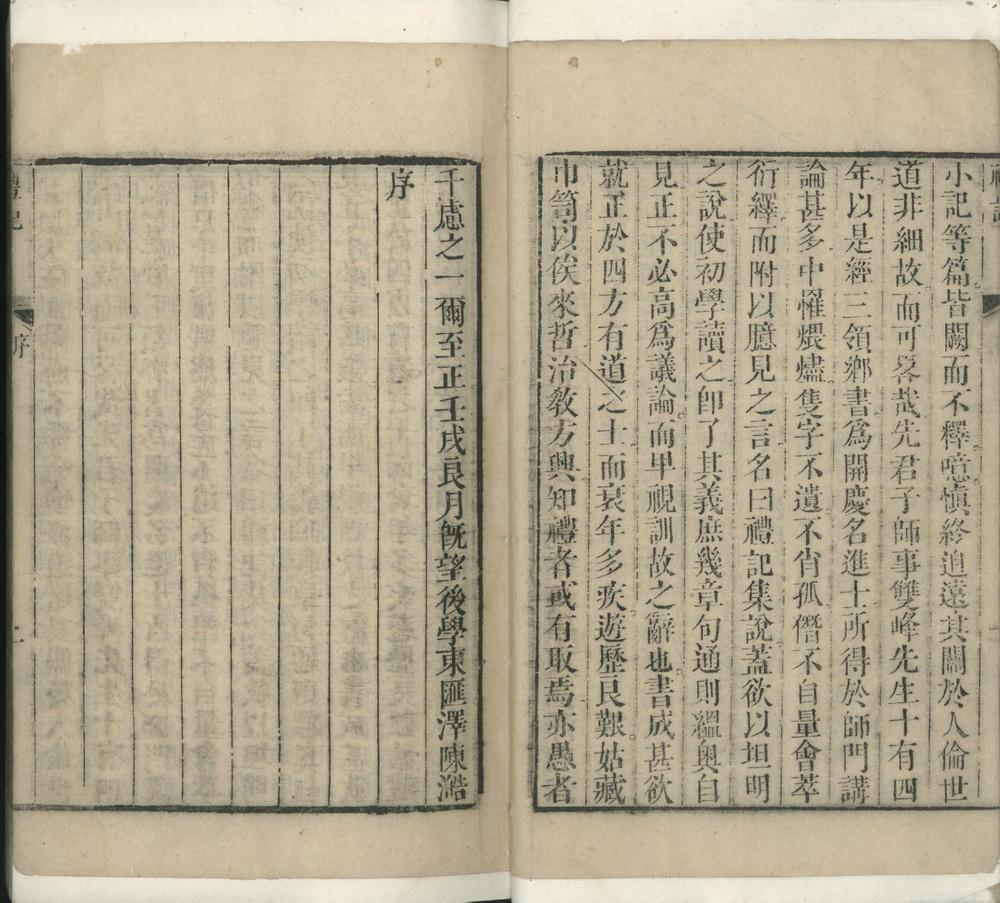 小記等篇皆闕而不釋噫愼終追遠其關於人倫世
道非細故而可畧哉先君子師事雙峰先生十有四
年以是經三領鄉書爲開慶名進士所得於師門講
論甚多中罹煨燼隻字不遺不肖孤僭不自量會萃
衍繹而附以臆見之言名曰禮記集說蓋欲以坦明
之說使初學讀之卽了其義庶幾章句通則縕奥自
見正不必高爲議論而卑視訓故之辭也書成甚欲
就正於四方有道之士而衰年多疾遊歷良艱姑藏
巾笥以俟來哲治敎方興知禮者或有取焉亦愚者
千慮之一爾至正壬戌良月旣望後學東匯澤陳澔
序
禮記 序